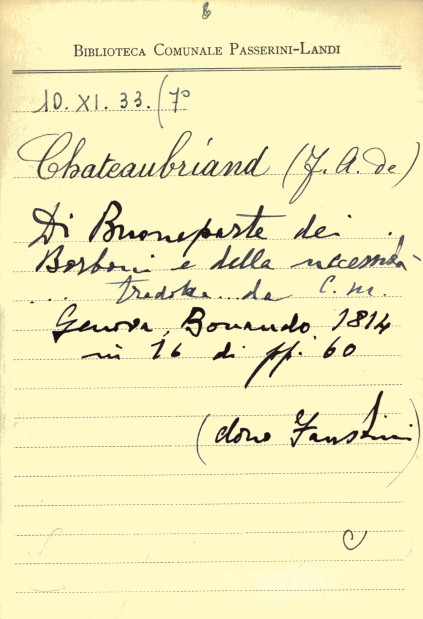 8
BIBLIOTECA COMUNALE PASSERINI-LANDI
10. XI. 33. (7°
Chateaubriand (F. A. de)
Di Buonaparte dei
Borboni e della necessità
... tradotta da C. M.
Genova, Bonaudo 1814
in 16 di pp. 60
(dono Faustini)
C